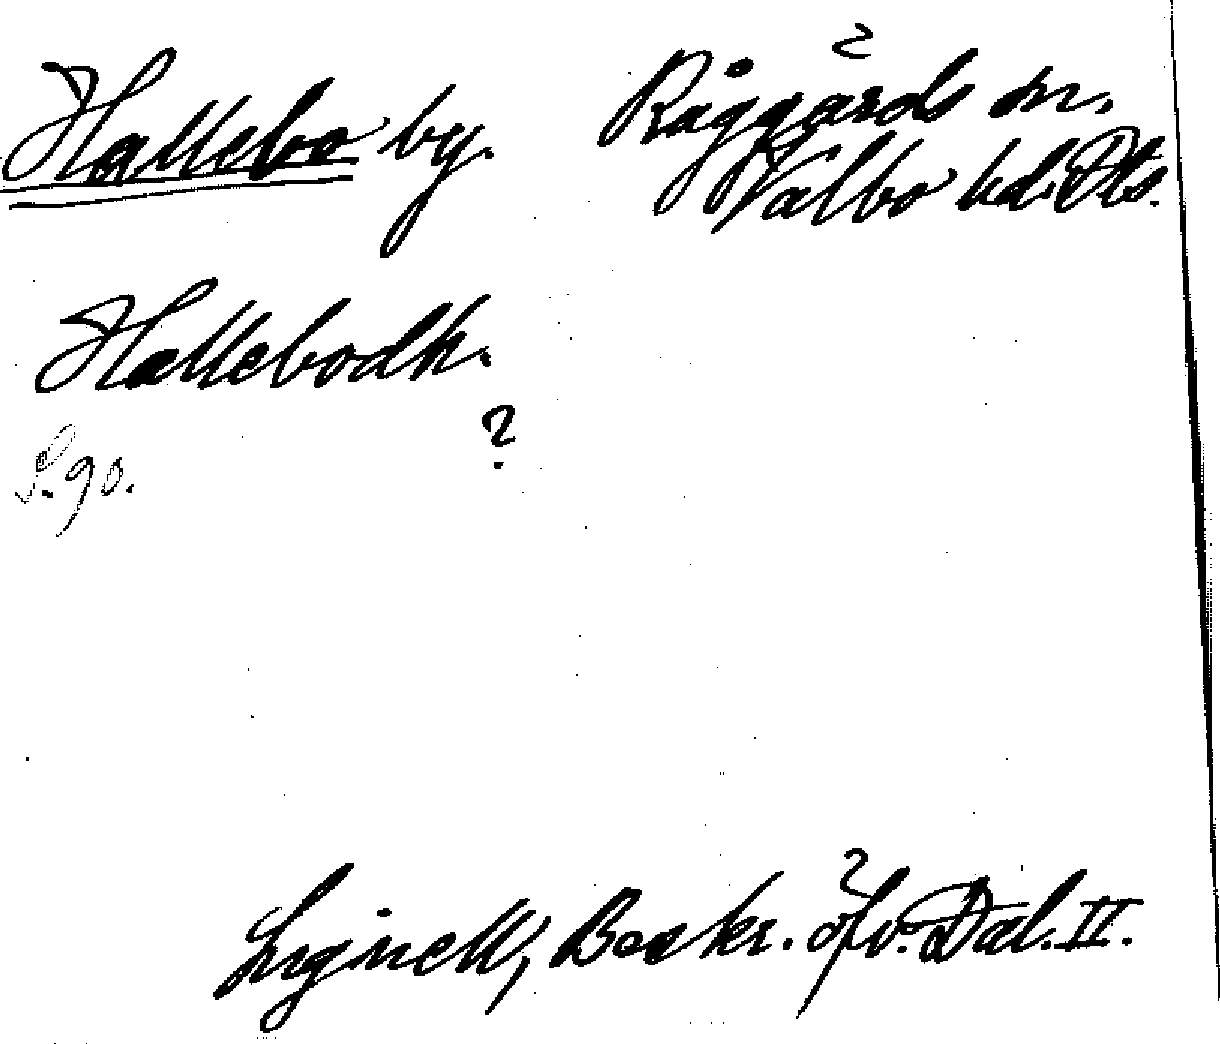 Hallebo by. Råggärds sn.
Valbo hd. Dls.
Hallebodh.
?
S. 90.
Lignell, Beskr. öfv. Dal. II.